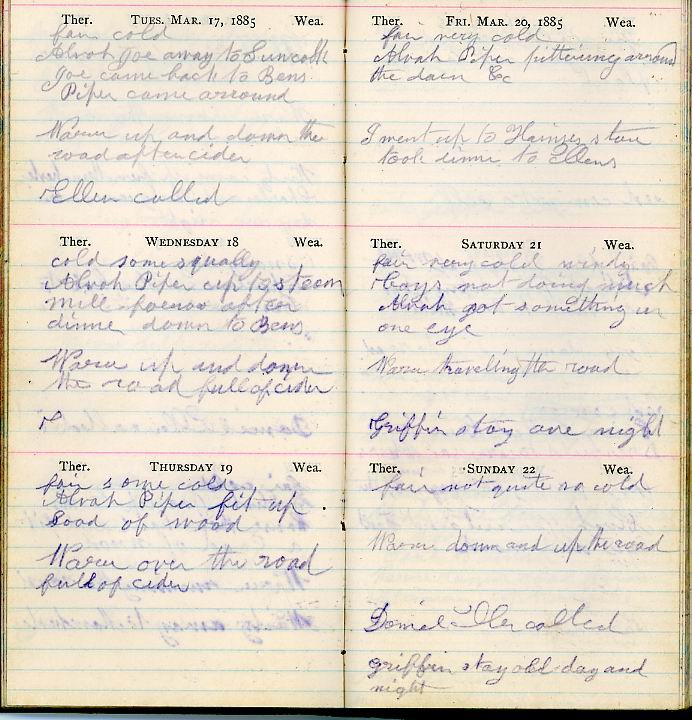 Ther. TUES. MAR. 17, 1885 Wea.
fair cold
Alvah Joe away to Suncook
Joe came back to Bens
Piper came arround
Waru up and down the
road after cider
Ellen called
Ther. WEDNESDAY 18 Wea.
cold some squally
Alvah Piper up to steam
mill after
dinner down to Bens
Waru up and down
the road full of cider
Ther. THURSDAY 19 Wea.
fair some cold
Alvah Piper fit up
load of wood
Waru over the road
full of cider
Ther. FRI. MAR. 20, 1885 Wea.
fair very cold
Alvah Piper puttering around
the &c
I went up to store
took dinner to Ellens
Ther. SATURDAY 21 Wea.
fair very cold windy
Boys not doing much
Alvah got something in
one eye
Waru traveling the road
Griffin stay one night
Ther. SUNDAY 22 Wea.
fair not quite so cold
Waru down and up the road
Daniel called
Griffin stay day and
night